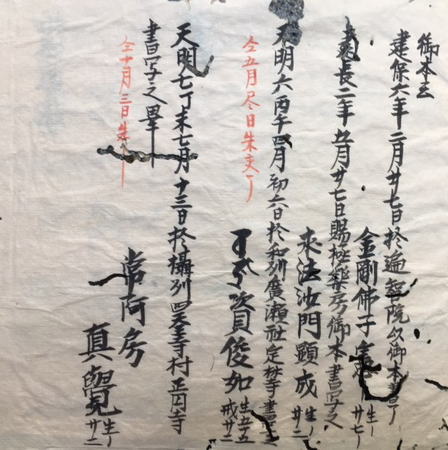 御本云
建保六年二月廿七日於遍智院以御本書了
金剛佛子 生年廿七
長二年五月廿七日賜極楽房御本書写之
求法沙門顕成 生年廿二
天明六丙午四月初六日於和州廣瀬社定林寺書写之
資俊如 生五十五 戒廿二
仝五月尽日朱交了
天明七丁未七月十三日於攝州四天王寺村正圓寺
書写之畢
仝十月三日朱
常阿房
真覺 生年廿二